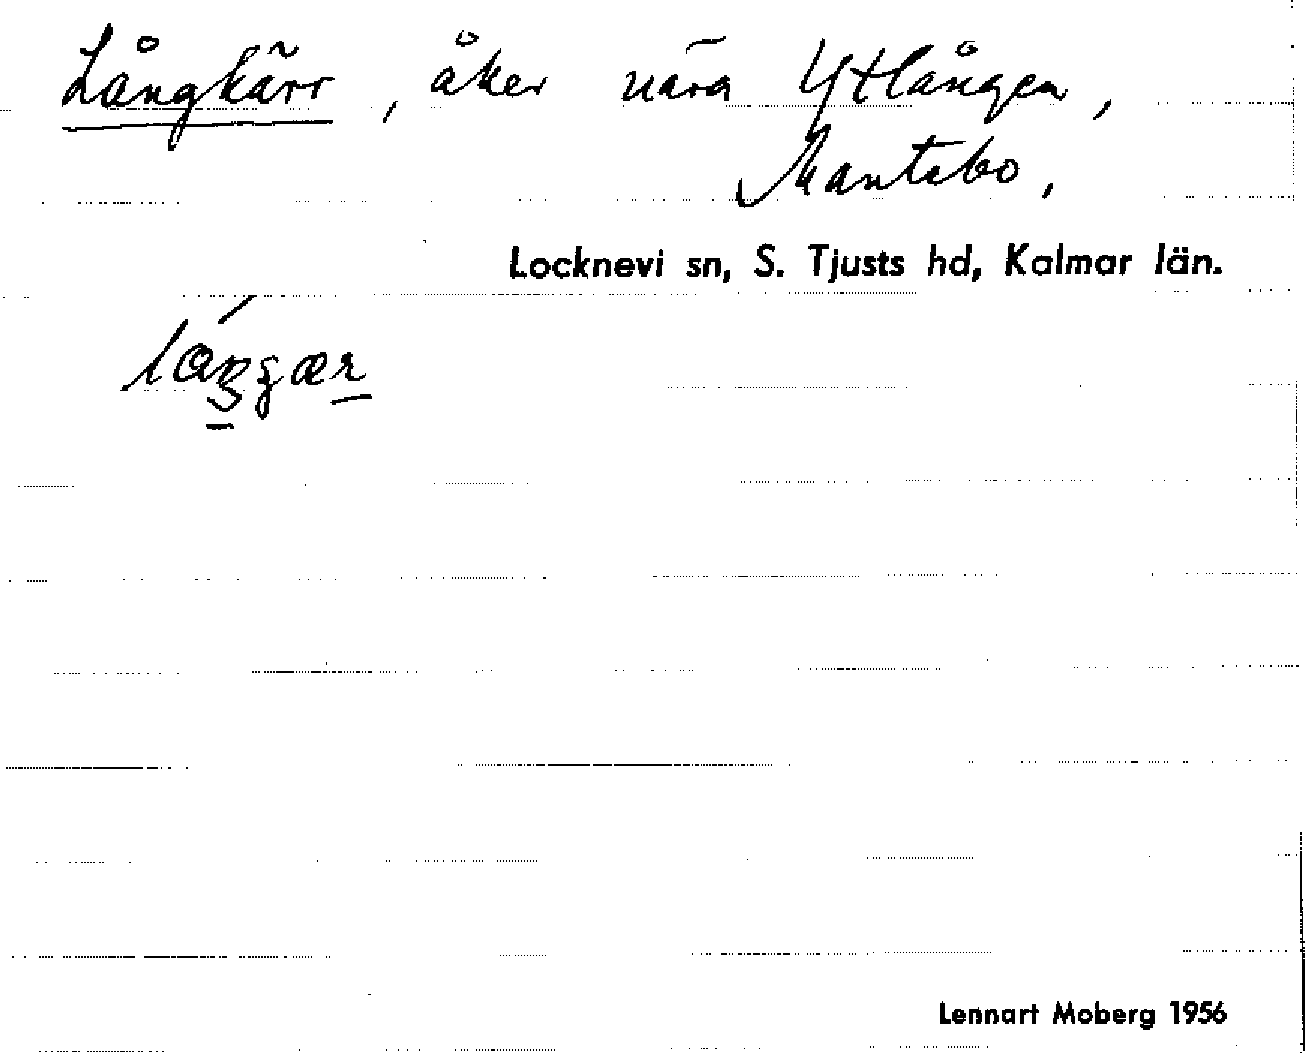 Långkärr, åker nära Ytlången,
Mantebo,
Locknevi sn, S. Tjusts hd, Kalmar län.
Lennart Moberg 1956